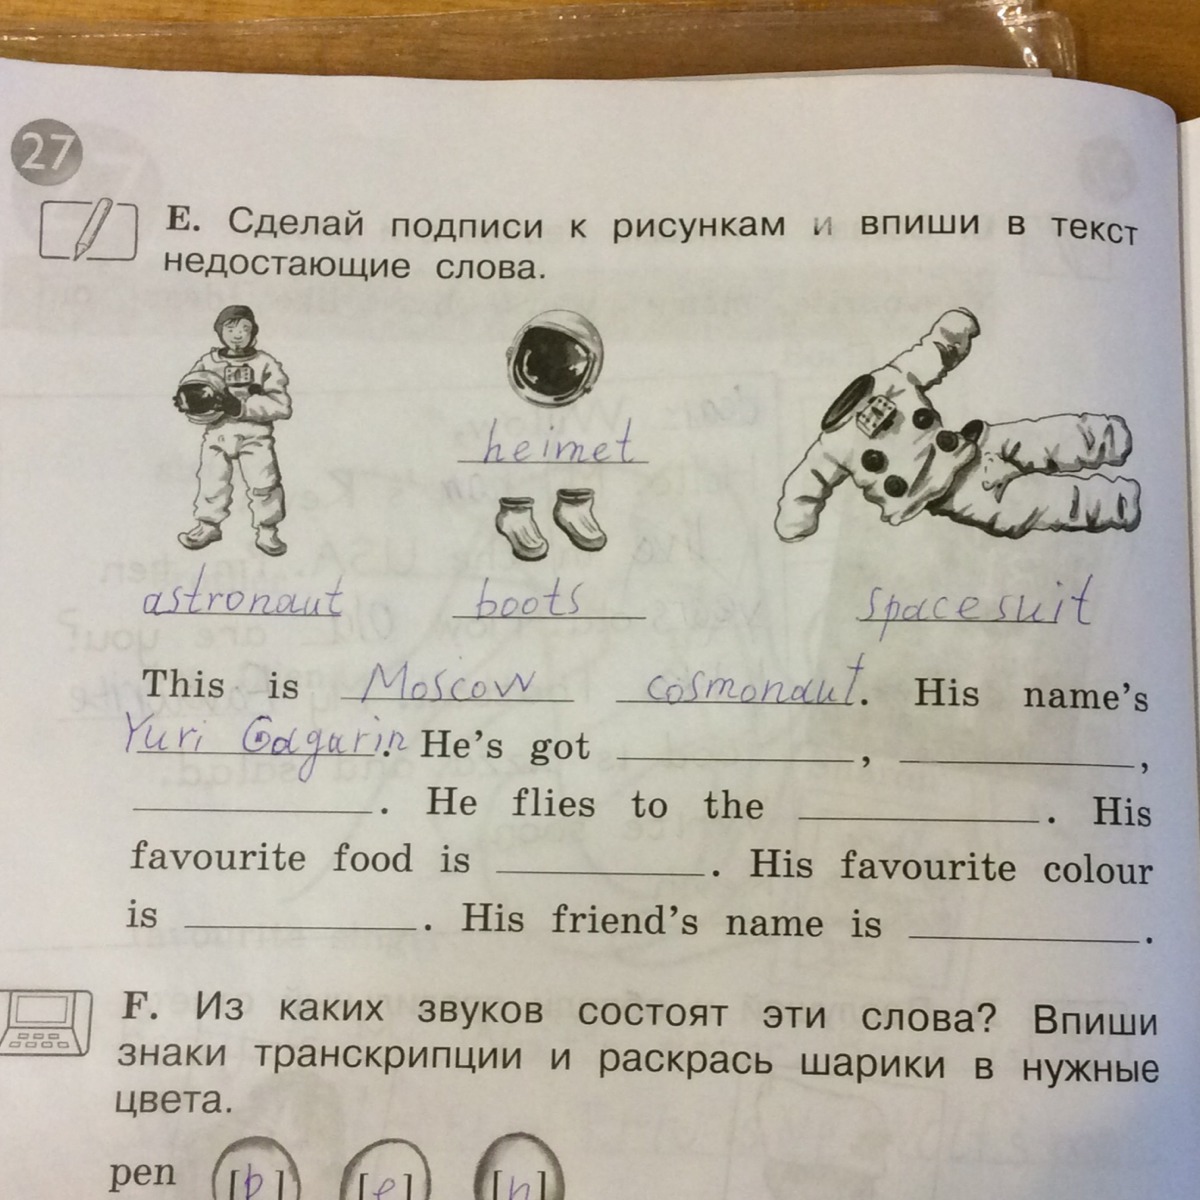 27
E. Сделай подписи к рисункам и впиши в текст
недостающие слова.
heimet
astronaut boots spacesuit
This is Moscow cosmonaut. His name's
Yuri Gagarin. He's got ____, ____,
____. He flies to the ____. His
favourite food is ____. His favourite colour
is ____. His friend's name is ____.
F. Из каких звуков состоят эти слова? Впиши
знаки транскрипции и раскрась шарики в нужные
цвета.
pen [p] [e] [n]